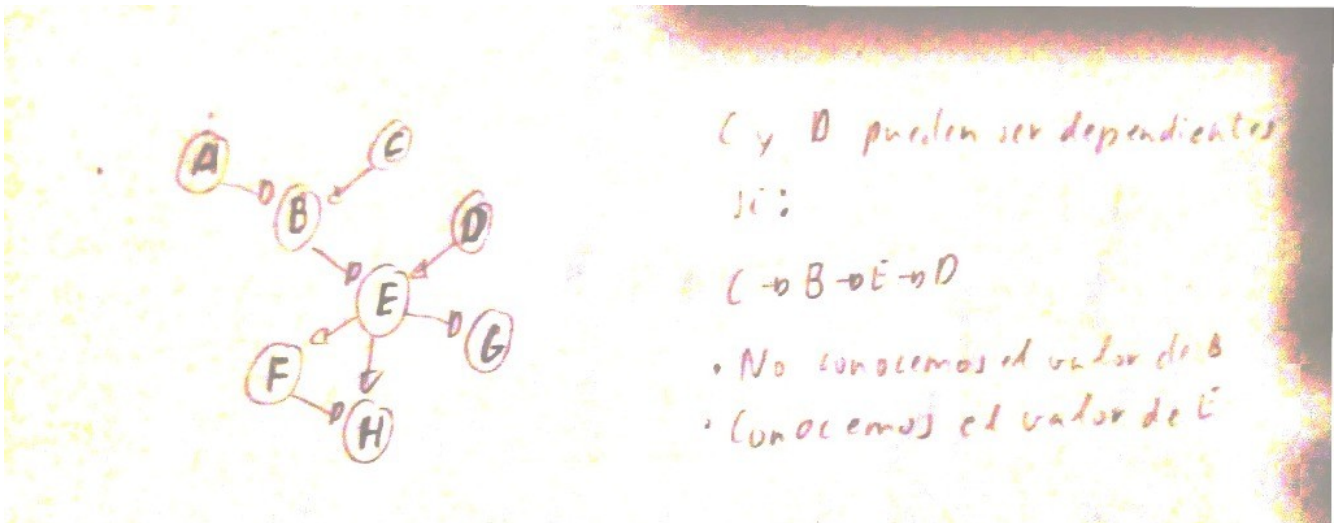 A
C
B
D
E
G
F
H
C y D pueden ser dependientes
si:
C → B → E → D
• No conocemos el valor de B
• Conocemos el valor de E